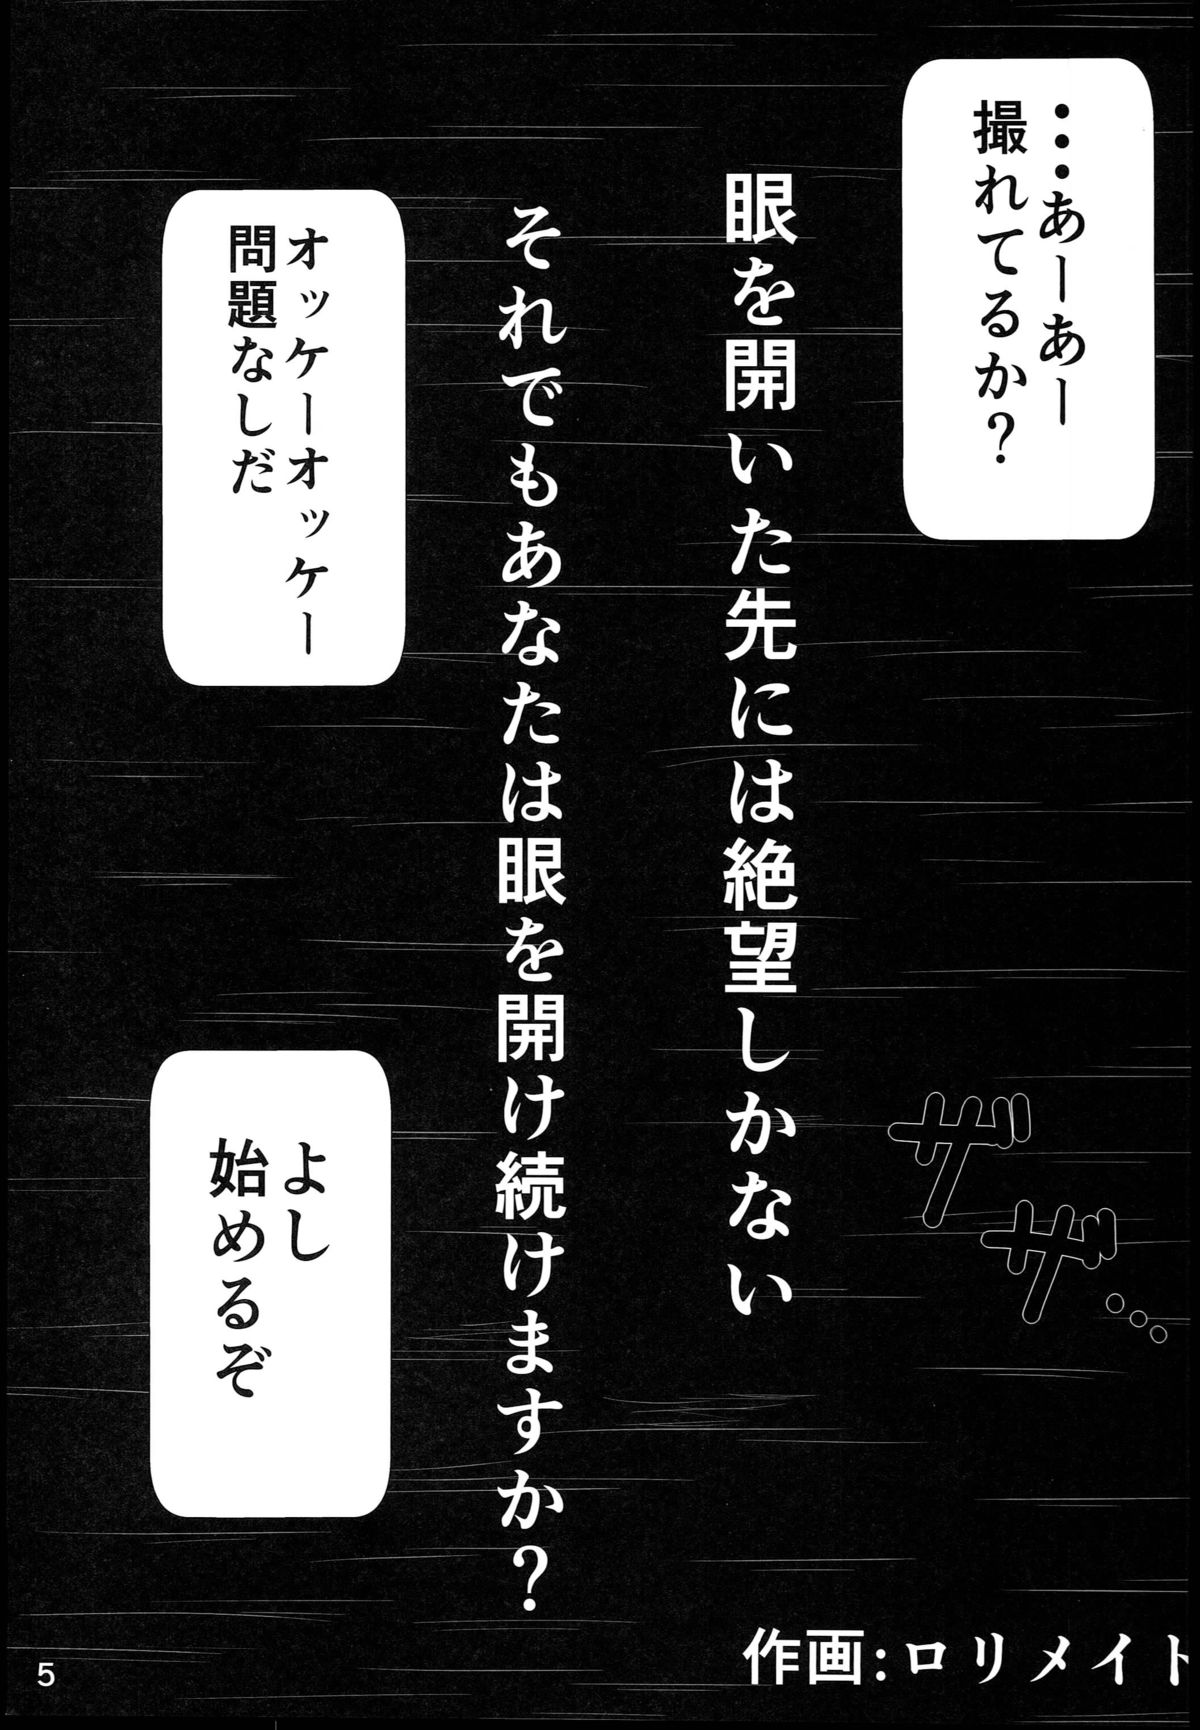 ・・・あーあー
撮れてるか？
眼を開いた先には絶望しかない
それでもあなたは眼を開け続けますか？
オッケーオッケー
問題なしだ
ザザ・・・
よし
始めるぞ
作画:ロリメイト
5